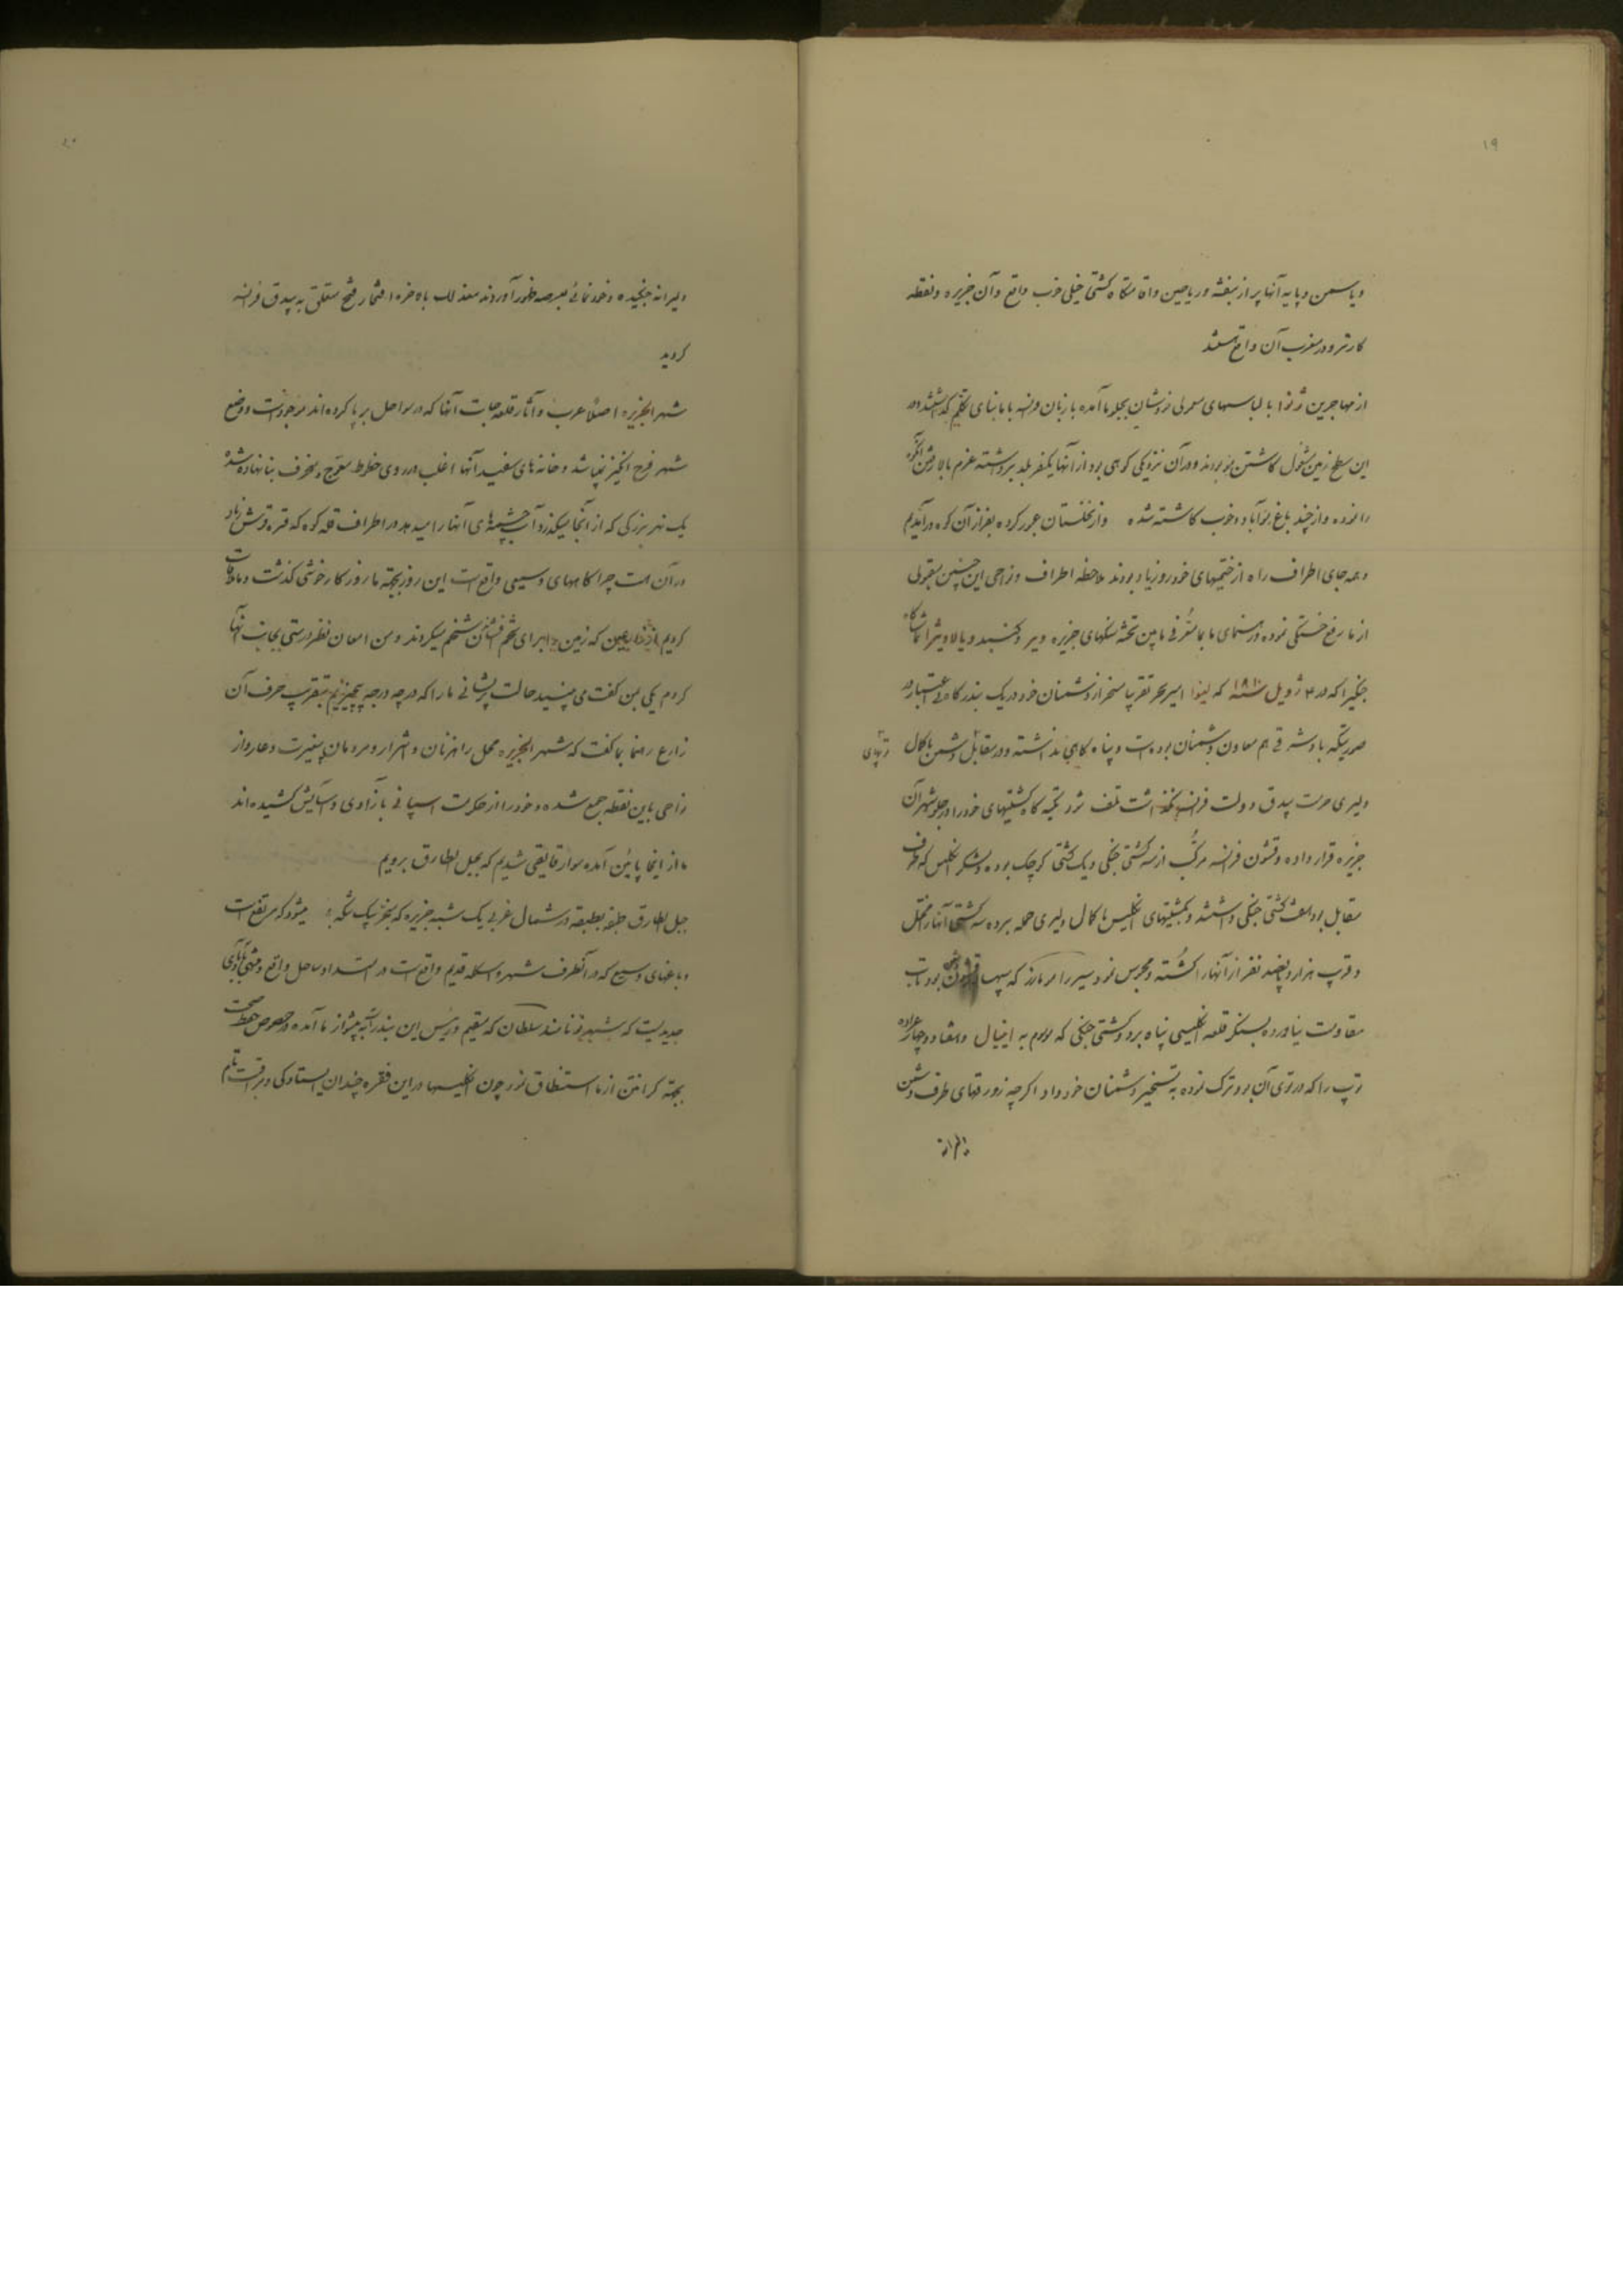 ۱۹
و یاسمن و پایه آنها پر از بنفشه و ریاحین و اقامتگاه کشتی خیلی خوب واقع و آن جزیره و نقطه
کارترو در مغرب آن واقع هستند
از مهاجرین ژنوا با لباسهای معمولی خودشان بجلو ما آمده با زبان فرانسه با ما بنای تکلم گذاشتند و در
این سطح زمین مشغول کاشتن مو بودند و در آن نزدیکی کوهی بود از آنها یکنفر بلد برداشته عزم بالا رفتن آنکوه
را نموده و از چند باغ پرآباد و خوب کاشته شده و از نخلستان عبور کرده بفراز آن کوه در آمدیم
و همه جای اطراف راه از ختمیهای خودرو زیاد بودند ملاحظه اطراف و نواحی این چنین بقبولی
از ما رفع خستگی نموده و رهنمای ما بما معرفی مابین تخته سنگهای جزیره ویر و گنبد و یالا ویترا تماشاگاه
جنگیرا که در ۴ ژویل سنه ۱۸۱۰ که لینوا امیر بحر تقریبا مسخر از دشمنان خود در یک بندرگاه بی اعتبار در
صورتیکه باد شرقی هم معاون دشمنان بوده است و پناه گاهی نداشته و در مقابل دشمن با کمال
توپهای
دلیری حرمت بیدق دولت فرانسه نگذاشت تلف شود تکیه گاه کشتیهای خود را در جلو شهر آن
جزیره قرار داده و قشون فرانسه مرکب از سه کشتی جنگی و یک کشتی کوچک بوده و لشکر انگلیس که طرف
مقابل بود هشت کشتی جنگی داشتند و بکشتیهای انگلیس با کمال دلیری حمله برده سه کشتی آنها را مختل
و قریب هزار و پانصد نفر از آنها را کشته و مجروس نمود سیر رامومارز که سپهسا قشون بود تاب
مقاومت نیاورده بسنگر قلعه انگلیسی پناه برد و کشتی جنگی که موسوم به انیبال و هفتاد و چهار عراده
توپ را که در توی آن بود ترک نموده به تسخیر دشمنان خود داد اگرچه زورقهای طرف دشمن
دلیرانه
۲۰
دلیرانه جنگیده و خودنمائی بعرصه ظهور آوردند معذلک بالاخره افتخار فتح متعلق به بیدق فرانسه
گردید
شهر الجزیره اصلاً عرب و آثار قلعه جات آنها که در سواحل بر پا کرده اند موجود است و وضع
شهر فرح انگیز نمیباشد و خانه های سفید آنها اغلب در روی خطوط معوج و منحرف بنا نهاده شده
یک نهر بزرگی که از آنجا میگذرد آب چشمه های آنها را میدهد در اطراف قله کوه که قره قرتش زیاد
در آن است چراگاههای وسیعی واقع است این روز بجهة ما روز کار خوشی گذشت و ملاقات
کردیم از زارعین که زمین را برای تخم فشاندن شخم میکردند و من امعان نظر درستی بجانب آنها
کردم یکی بمن گفت می بینید حالت پریشانی ما را که در چه درجه بیچیزیم بتقریب حرف آن
زارع رهنما بما گفت که شهر الجزیره محل راهزنان و اشرار و مردمان بیغیرت و عار و از
نواحی باین نقطه جمع شده و خود را از حکومت اسپانی بآزادی و آسایش کشیده اند
ما از اینجا پائین آمده سوار قایقی شدیم که بجبل الطارق برویم
جبل الطارق طبقه بطبقه در شمال غربی یک شبه جزیره که بجز یک تکه میشود که مرتفع است
و باغهای وسیع که در آنطرف شهر و اسکله قدیم واقع است در امتداد ساحل واقع و منتهی بآبادی
جدیدیست که شبیه توسا مند سلطان که مقیم و رئیس این بندر است به پیشواز ما آمده در خصوص حفظ صحت
بجهة کرانتن از ما استنطاق نمود چون انگلیسها در این فقره چندان ایستادگی و مراقبت تام